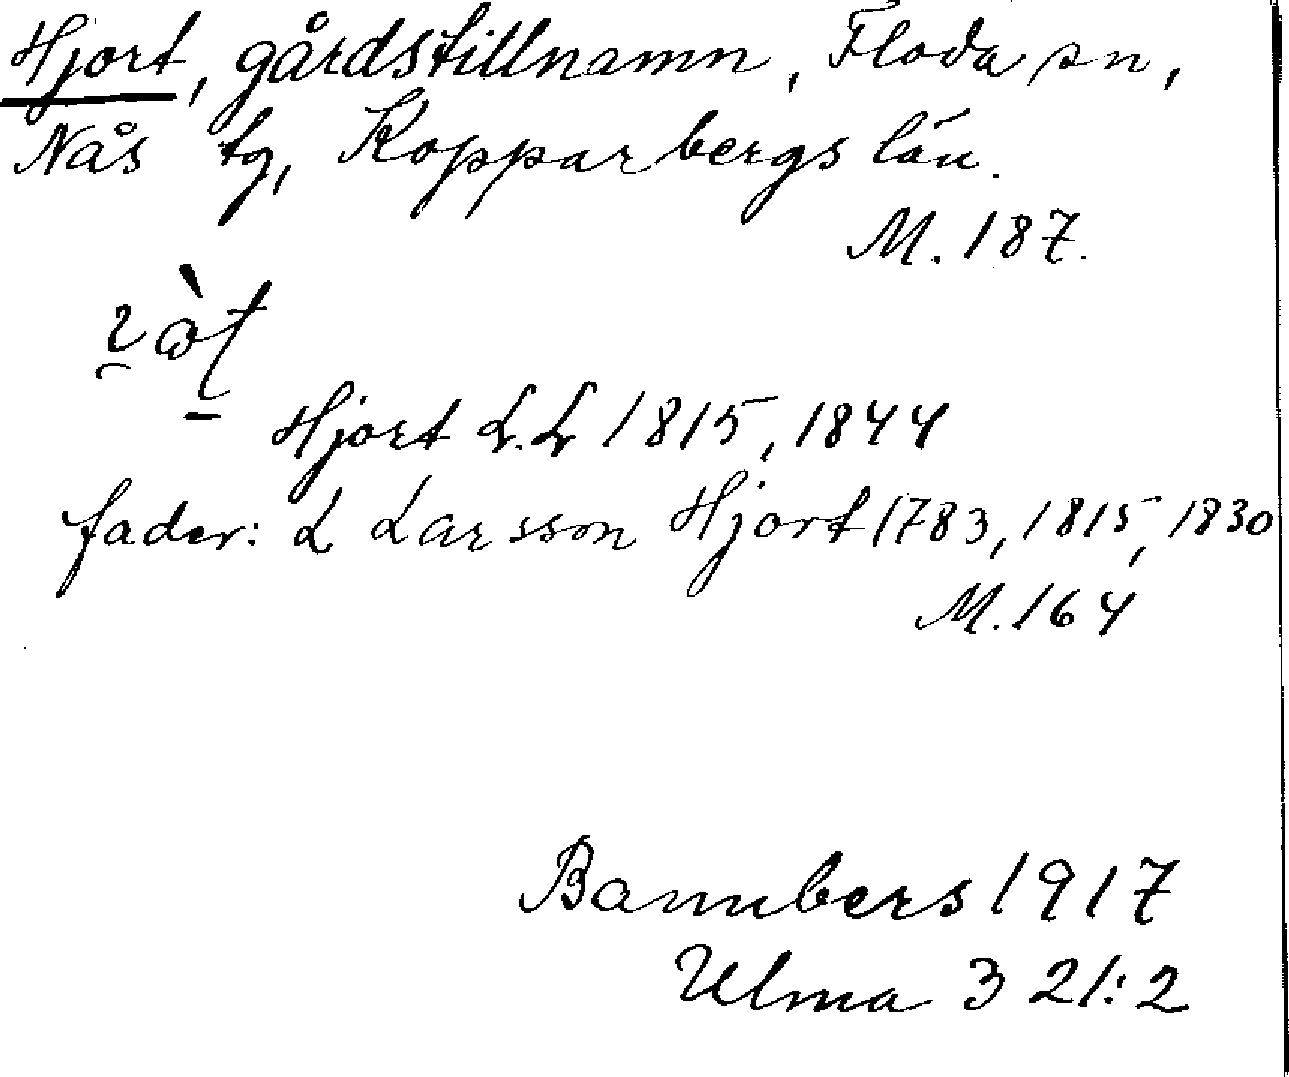 Hjort, gårdstillnamn, Floda sn,
Nås tg, Kopparbergs län.
M. 187.
Hjort L. L 1815, 1844
fader: L Larsson Hjort 1783, 1815, 1830
M. 164
Bannbers 1917
Ulma 321:2